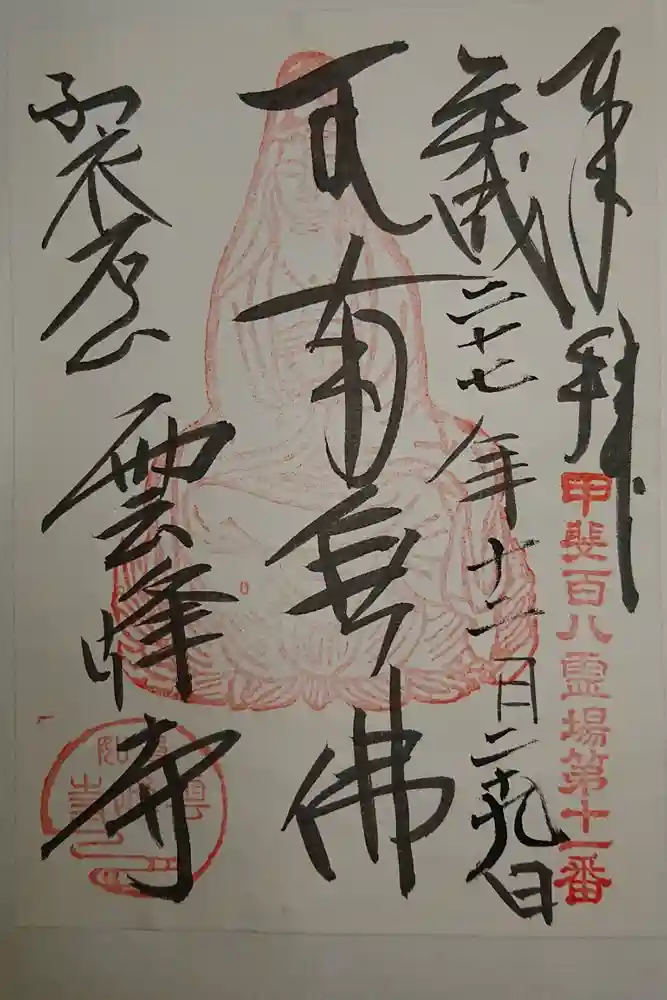 奉拝
甲斐百八霊場第十一番
平成二十七年十二月二十九日
南無佛
裂石山 雲峰寺